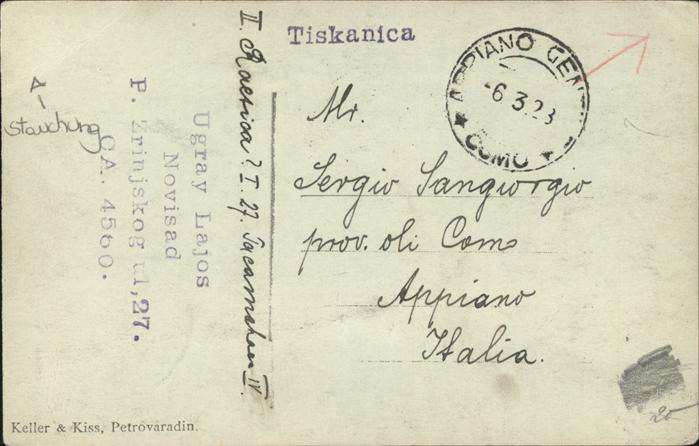 Tiskanica
APPIANO GEN
-6 3.23
COMO
Mr.
Sergio Sangiorgio
prov. oli Como
Appiano
Italia.
II.
I. 27.
IV.
Ugray Lajos
Novisad
P. Zrinjskog ul, 27.
CA. 4560.
Stauchung
Keller & Kiss, Petrovaradin.
20